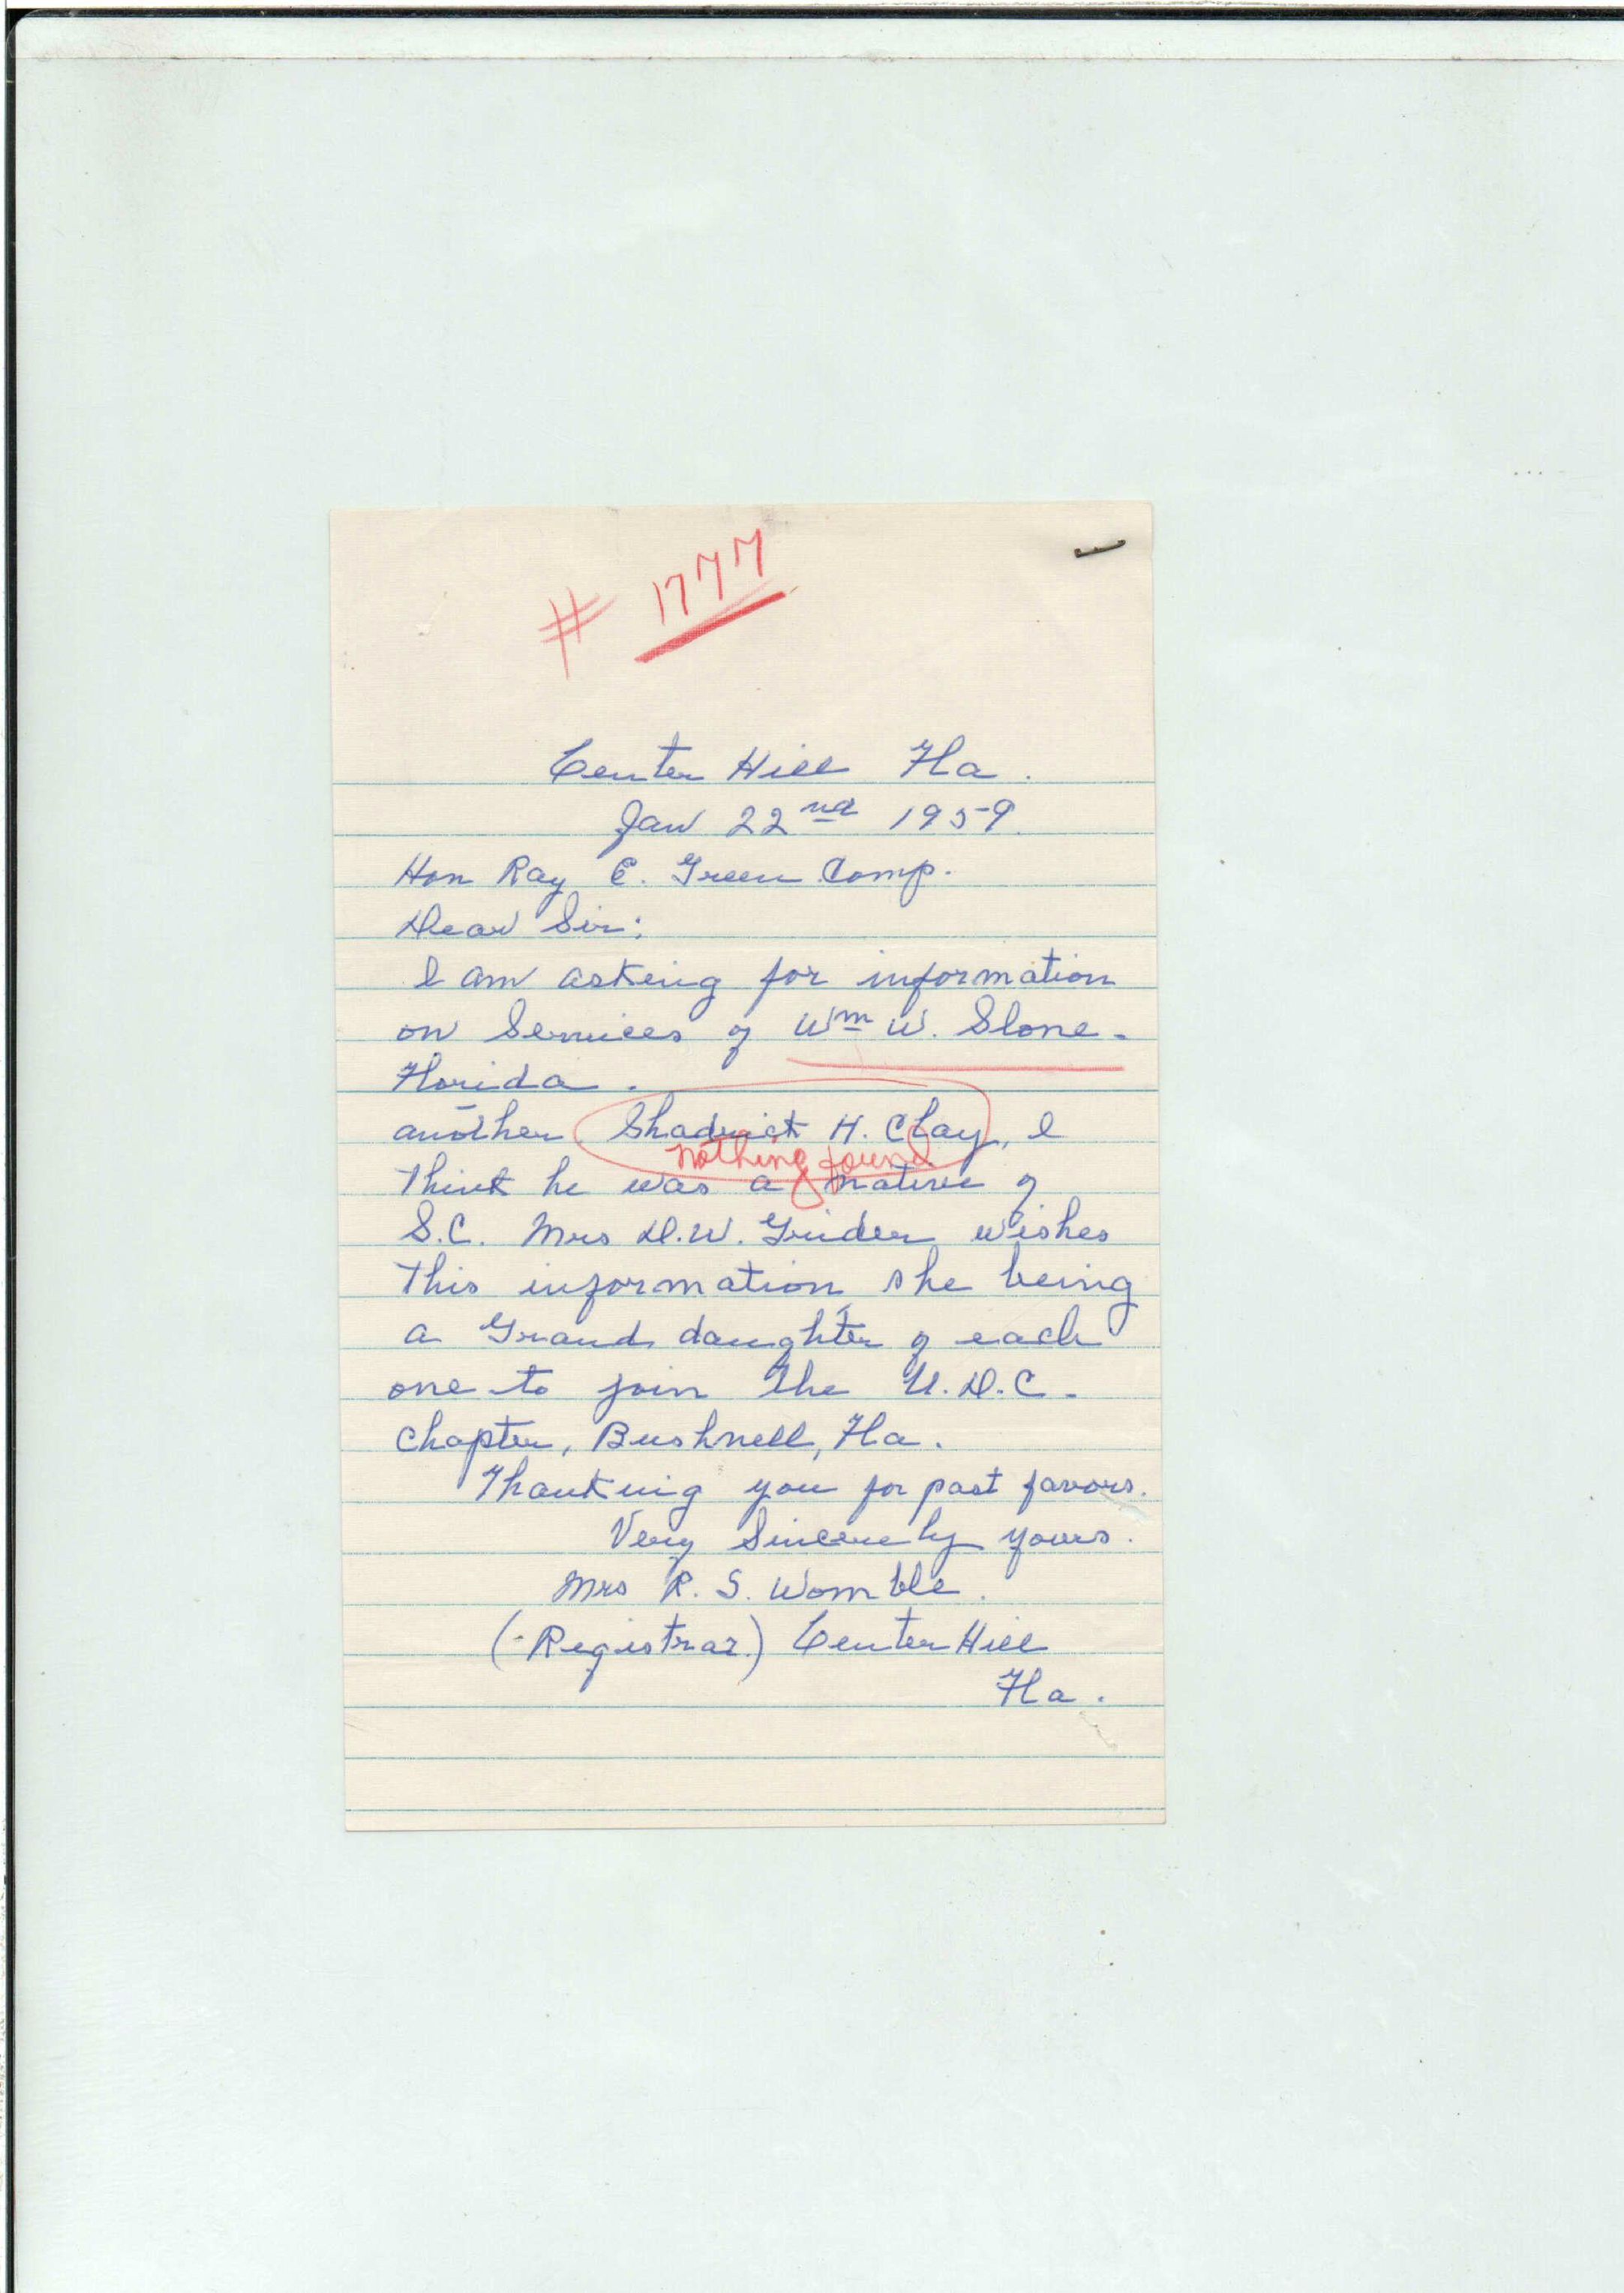 # 1777
Center Hill Fla.
Jan 22nd 1959.
Hon Ray E. Green Comp.
Dear Sir:
I am asking for information
on Services of Wm W. Slone.
Florida.
another Shadrick H. Clay, I
nothing found
think he was a native of
S.C. Mrs D.W. Grider wishes
this information she being
a Grand daughter of each
one to join the U.D.C.
Chapter, Bushnell, Fla.
Thanking you for past favors.
Very Sincerely yours.
Mrs R. S. Womble.
(Registrar.) Center Hill
Fla.